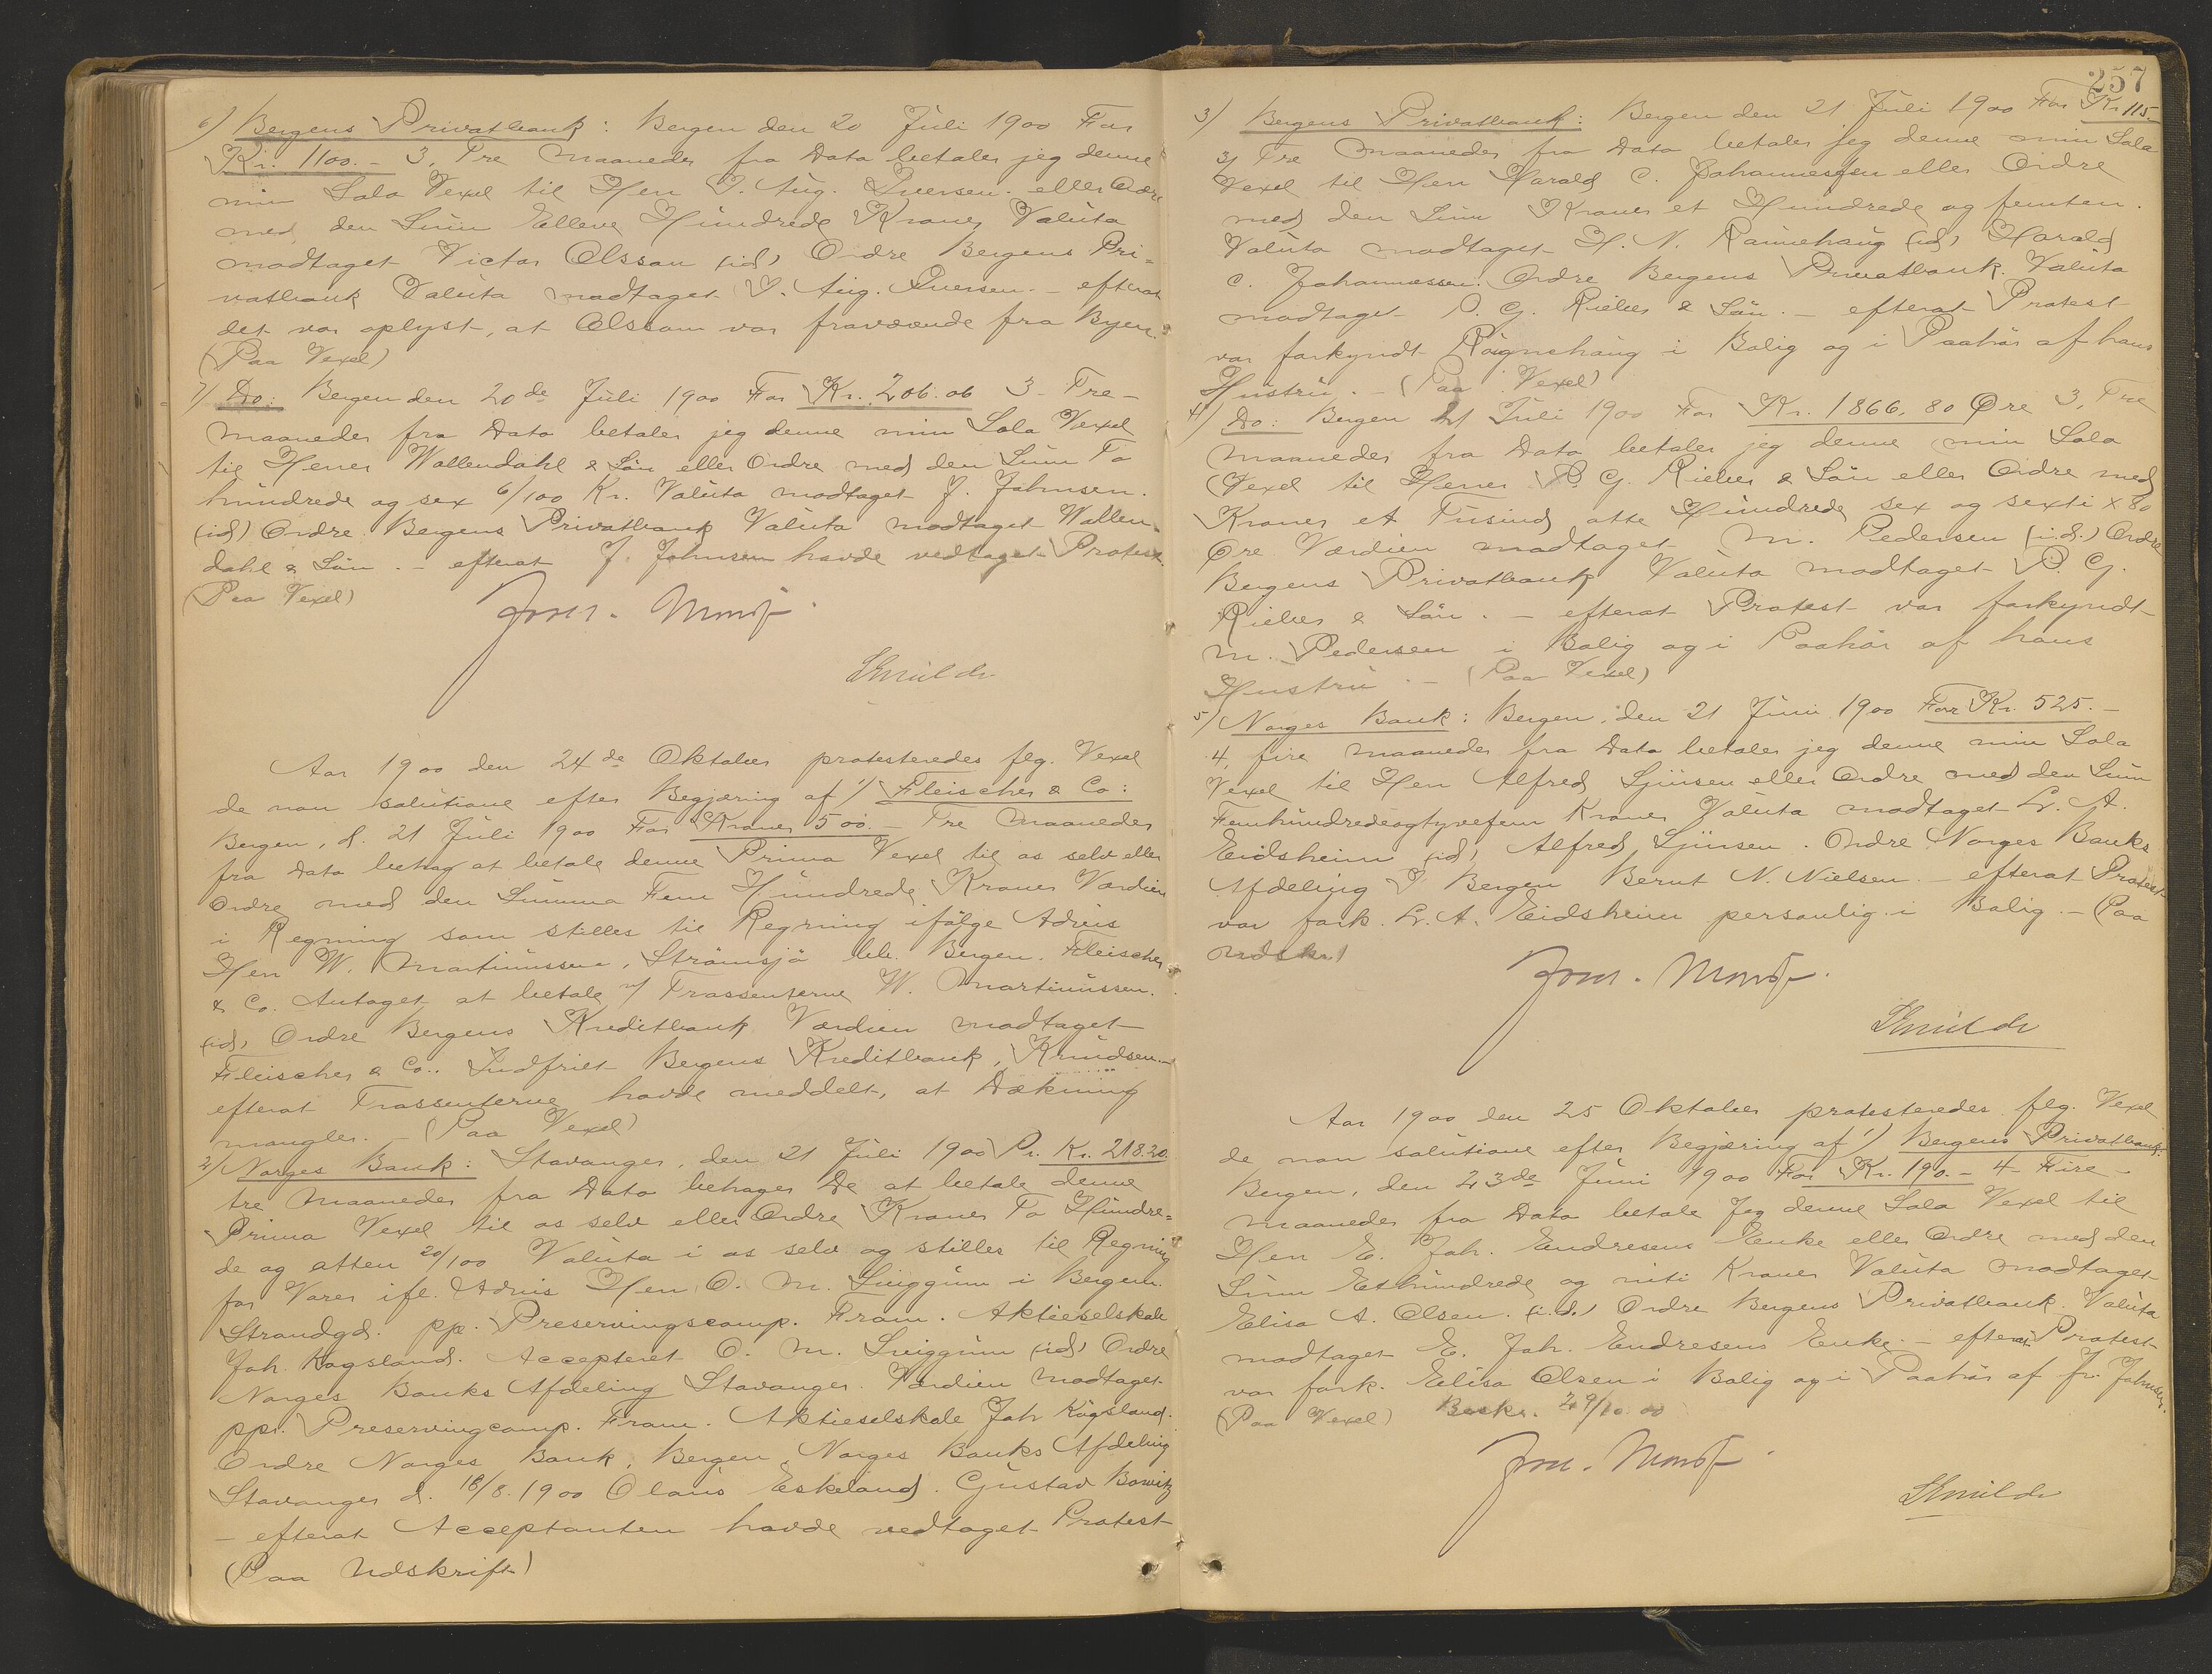 6) Bergens Privatbank: Bergen den 20 Juli 1900 For
Kr. 1100.- 3, Tre Maaneder fra Dato betaler jeg denne
min Sola Vexel til Herr J. Aug. Iversen. eller Ordre
med den Sum Elleve Hundrede Kroner Valuta
modtaget Victor Olsson (id) Ordre Bergens Pri=
vatbank Valuta modtaget J. Aug. Iversen. - efterat
det var oplyst, at Olsson var fraværende fra Byen.
(Paa Vexel)
7) Do: Bergen den 20de Juli 1900 For Kr. 206.06 3- Tre-
Maaneder fra Dato betaler jeg denne min Sola Vexel
til Herrer Wallendahl & Sön eller Ordre med den Sum To
hundrede og sex 6/100 Kr. Valuta modtaget J. Johnsen.
(id) Ordre Bergens Privatbank Valuta modtaget Wallen-
dahl & Sön. - efterat J. Johnsen havde vedtaget Protest.
(Paa Vexel)
Aar 1900 den 24de Oktober protesteredes flg. Vexel
de non solutione efter Begjæring af 1) Fleischer & Co:
Bergen, d. 21 Juli 1900 For Kroner 500.- Tre Maaneder
fra Dato behag at betale denne Prima Vexel til os selv eller
Ordre med den Summa Fem Hundrede Kroner Værdien
i Regning som stilles til Regning ifölge Advis
Herr W. Martinussen, Strömsjö bk. Bergen. Fleischer
& Co. Antaget at betale Trassenterne W. Martinussen.
(id) Ordre Bergens Kreditbank Værdien modtaget
Fleischer & Co.. Indfriet Bergens Kreditbank, Knudsen
efterat Trassenterne havde meddelt, at Dækning
mangler. - (Paa Vexel)
2) Norges Bank: Stavanger, den 21 Juli 1900 Pr. Kr. 218.20
tre Maaneder fra Dato behager De at betale denne
Prima Vexel til os selv eller Ordre Kroner To Hundre=
de og atten 20/100 Valuta i os selv og stilles til Regning
for Varer ifl. Advis Herr O. M. Sviggum i Bergen.
Strandgd. pp. Preservingscomp. Fram. Aktieselskab
Joh. Kogsland. Accepteret O. M. Sviggum (id) Ordre
Norges Banks Afdeling Stavanger. Værdien modtaget
pp. Preservingcomp. Fram. Aktieselskab Joh Kogsland.
Ordre Norges Bank, Bergen Norges Banks Afdeling
Stavanger d. 18/8.1900 Olaus Eskeland. Gustav Bowitz
- efterat Acceptanten havde vedtaget Protest
(Paa Udskrift)
257
3) Bergens Privatbank: Bergen den 21 Juli 1900 For Kr 115.-
3, Tre Maaneder fra Dato betaler jeg denne min Sola
Vexel til Herr Harald C. Johannessen eller Ordre
med den Sum Kroner et Hundrede og femten.
Valuta modtaget H. N. Rønnehaug (id) Harald
C. Johannessen. Ordre Bergens Privatbank. Valuta
modtaget P. G. Rieber & Sön. - efterat Protest
var forkyndt Rögnehaug i Bolig og i Paahör af hans
Hustru. - (Paa Vexel)
4) Do: Bergen 21 Juli 1900 For Kr. 1866. 80 Øre 3, Tre
Maaneder fra Dato betaler jeg denne min Sola
Vexel til Herrer P. G. Rieber & Sön eller Ordre med
Kroner et Tusind otte Hundrede sex og sexti x 80
Øre Værdien modtaget M. Pedersen (i.d.) Ordre
Bergens Privatbank Valuta modtaget P. G.
Rieber & Sön. - efterat Protest var forkyndt
M. Pedersen i Bolig og i Paahör af hans
Hustru. - (Paa Vexel)
5) Norges Bank: Bergen, den 21 Juni 1900 For Kr. 525.-
4, fire Maaneder fra Dato betaler jeg denne min Sola
Vexel til Herr Alfred Sjursen eller Ordre med den Sum
Femhundredeogtyvefem Kroner Valuta modtaget L. A.
Eidsheim (id) Alfred Sjursen. Ordre Norges Banks
Afdeling I Bergen Bernt N. Nielsen. - efterat Protest
var fork. L. A. Eidsheim personlig i Bolig. - (Paa
Udskr.)
Aar 1900 den 25 Oktober protesteredes flg. Vexel
de non solutione efter Begjæring af 1) Bergens Privatbank:
Bergen, den 23de Juni 1900 For Kr. 190.- 4- Fire-
Maaneder fra Dato betale Jeg denne Sola Vexel til
Herr E. Joh. Endresens Enke eller Ordre med den
Sum Ethundrede og niti Kroner Valuta modtaget
Elisa A. Olsen. (i.d.) Ordre Bergens Privatbank. Valuta
modtaget E. Joh. Endresens Enke. - efterat Protest
var fork. Elisa Olsen i Bolig og i Paahör af fr. Johnsen.
(Paa Vexel) Beskr. 29/10.00